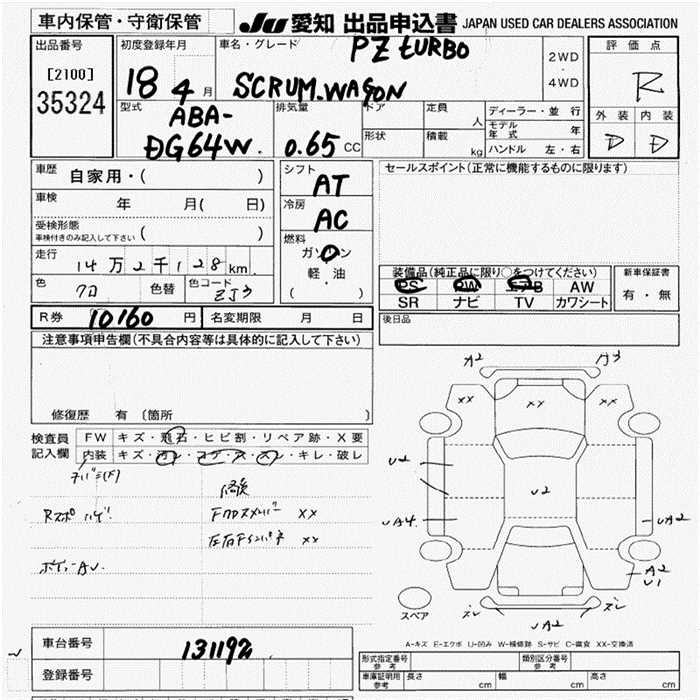 車内保管・守衛保管
JU 愛知 出品申込書 JAPAN USED CAR DEALERS ASSOCIATION
出品番号
[2100]
35324
初度登録年月
18 4 月
車名・グレード
PZ tURBO
SCRUM.WAGON
2WD
・
4WD
評価点
R
外装 内装
D D
型式
ABA-
DG64W.
排気量
0.65 CC
ドア
定員
人
形状
積載
kg
ディーラー・並行
モデル年式 年
ハンドル 左・右
車歴 自家用・( )
車検 年 月( 日)
受検形態
車検付きのみ記入して下さい ( )
走行 14万2千128km
色 クロ 色替 色コード ZJ3
シフト
AT
冷房
AC
燃料
ガソリン
軽・油
( )
セールスポイント(正常に機能するものに限ります)
装備品(純正品に限り○をつけてください)
PS PW エアB AW
SR ナビ TV カワシート
新車保証書
有・無
R券 10160 円 名変期限 月 日
後日品
注意事項申告欄(不具合内容等は具体的に記入して下さい)
修復歴 有 〔箇所 〕
検査員
記入欄
FW キズ・飛石・ヒビ割・リペア跡・X要
内装 キズ・汚レ・コゲ・穴・スレ・キレ・破レ
修復
XX
XX
A2 A3
XX XX XX
U2
U2
UA4.
UA2
A2
U1
UA2
スペア
A-キズ E-エクボ U-凹み W-補修跡 S-サビ C-腐食 XX-交換済
車台番号 131192
登録番号
形式指定番号
参考
類別区分番号
参考
車庫証明用
参考
長さ cm 幅 cm 高さ cm